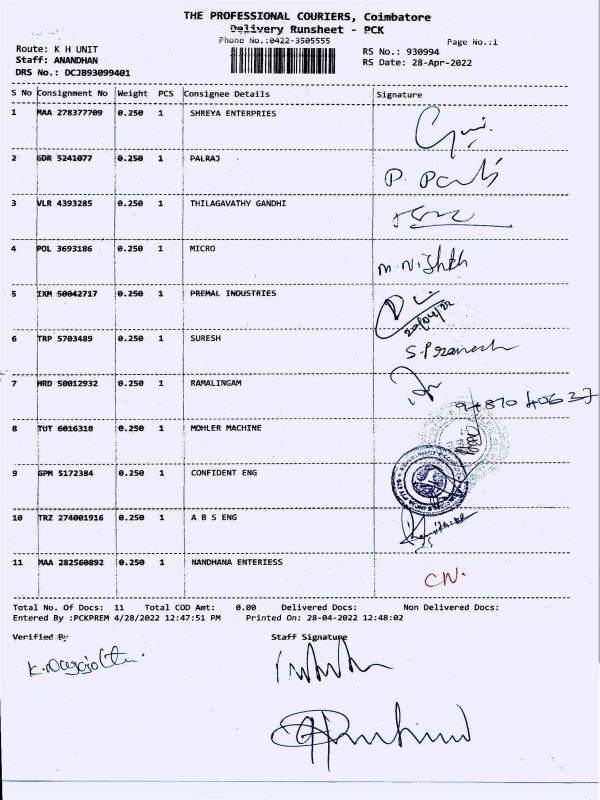 THE PROFESSIONAL COURIERS, Coimbatore
Delivery Runsheet - PCK
Phone No.:0422-3505555
Page No.:1
Route: K H UNIT
RS No.: 930994
Staff: ANANDHAN
RS Date: 28-Apr-2022
DRS No.: DCJB93099401
S No Consignment No Weight PCS Consignee Details Signature
1 MAA 278377709 0.250 1 SHREYA ENTERPRIES
2 GDR 5241077 0.250 1 PALRAJ
3 VLR 4393285 0.250 1 THILAGAVATHY GANDHI
4 POL 3693186 0.250 1 MICRO M. Nishth
5 IXM 50042717 0.250 1 PREMAL INDUSTRIES
6 TRP 5703489 0.250 1 SURESH S. Pranesh
7 HRD 50012932 0.250 1 RAMALINGAM
94870 40637
8 TUT 6016318 0.250 1 MOHLER MACHINE
9 GPM 5172384 0.250 1 CONFIDENT ENG
10 TRZ 274001916 0.250 1 A B S ENG
11 MAA 282560892 0.250 1 NANDHANA ENTERIESS CN.
Total No. Of Docs: 11 Total COD Amt: 0.00 Delivered Docs: Non Delivered Docs:
Entered By :PCKPREM 4/28/2022 12:47:51 PM Printed On: 28-04-2022 12:48:02
Verified By Staff Signature